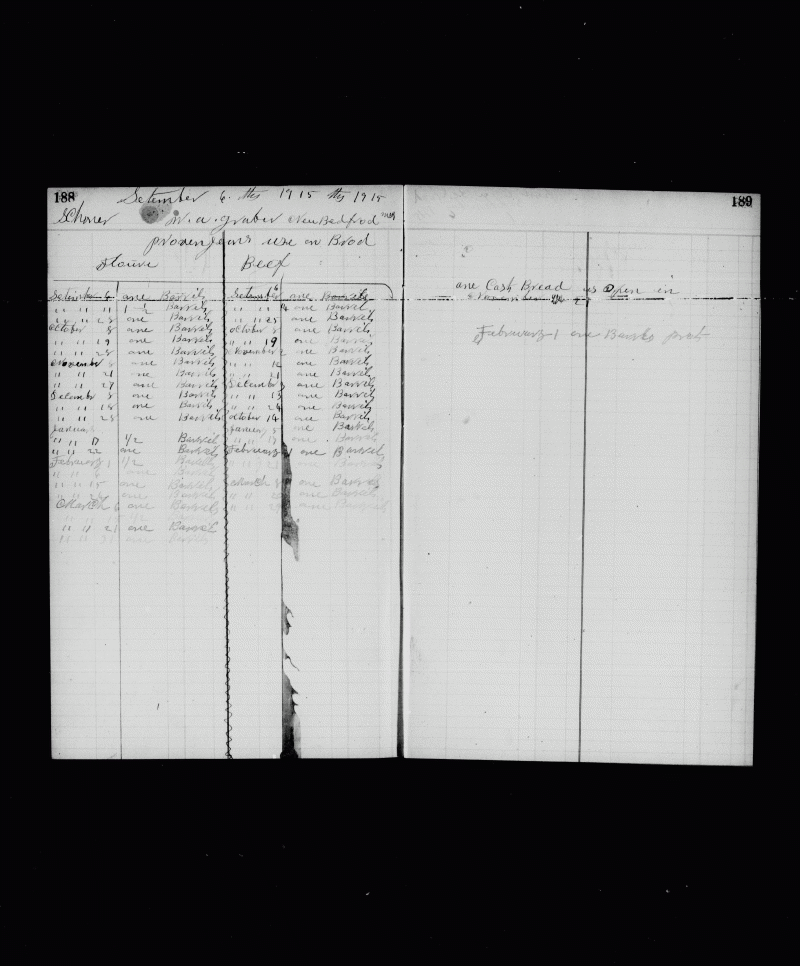 188
Setember 6. ths 1915 ths 1915
Schoner W. a. graber New Bedford
provenjons use on Brod
Flouer Beef
Setember 6 one Barrels Setember 6 one Barrels
" " 11 1 1/2 Barrels " " 14 one Barrels
" " 25 one Barrels " " 25 one Barrels
October 8 one Barrels October 8 one Barrels
" " 19 one Barrels " " 19 one Barrels
" " 28 one Barrels November 2 one Barrels
November 8 one Barrels " " 12 one Barrels
" " 21 one Barrels " " 21 one Barrels
" " 27 one Barrels Decembr 3 one Barrels
Decembr 8 one Barrels " " 13 one Barrels
" " 18 one Barrels " " 24 one Barrels
" " 28 one Barrels October 14 one Barrels
January January 5 one Barrels
" " 17 1/2 Barrels " " 17 one Barrels
" " 22 one Barrels February 1 one Barrels
February 1 1/2 Barrels " " 21 one Barrels
" " 6 one Barrels
" " 15 one Barrels March 8 one Barrels
" " one Barrels " " 20 one Barrels
March 6 one Barrels " " 29 one Barrels
" " 21 one Barrel
" " 31 one Barrels
189
one Cash Bread is Open in
November
February 1 one Barrls pork